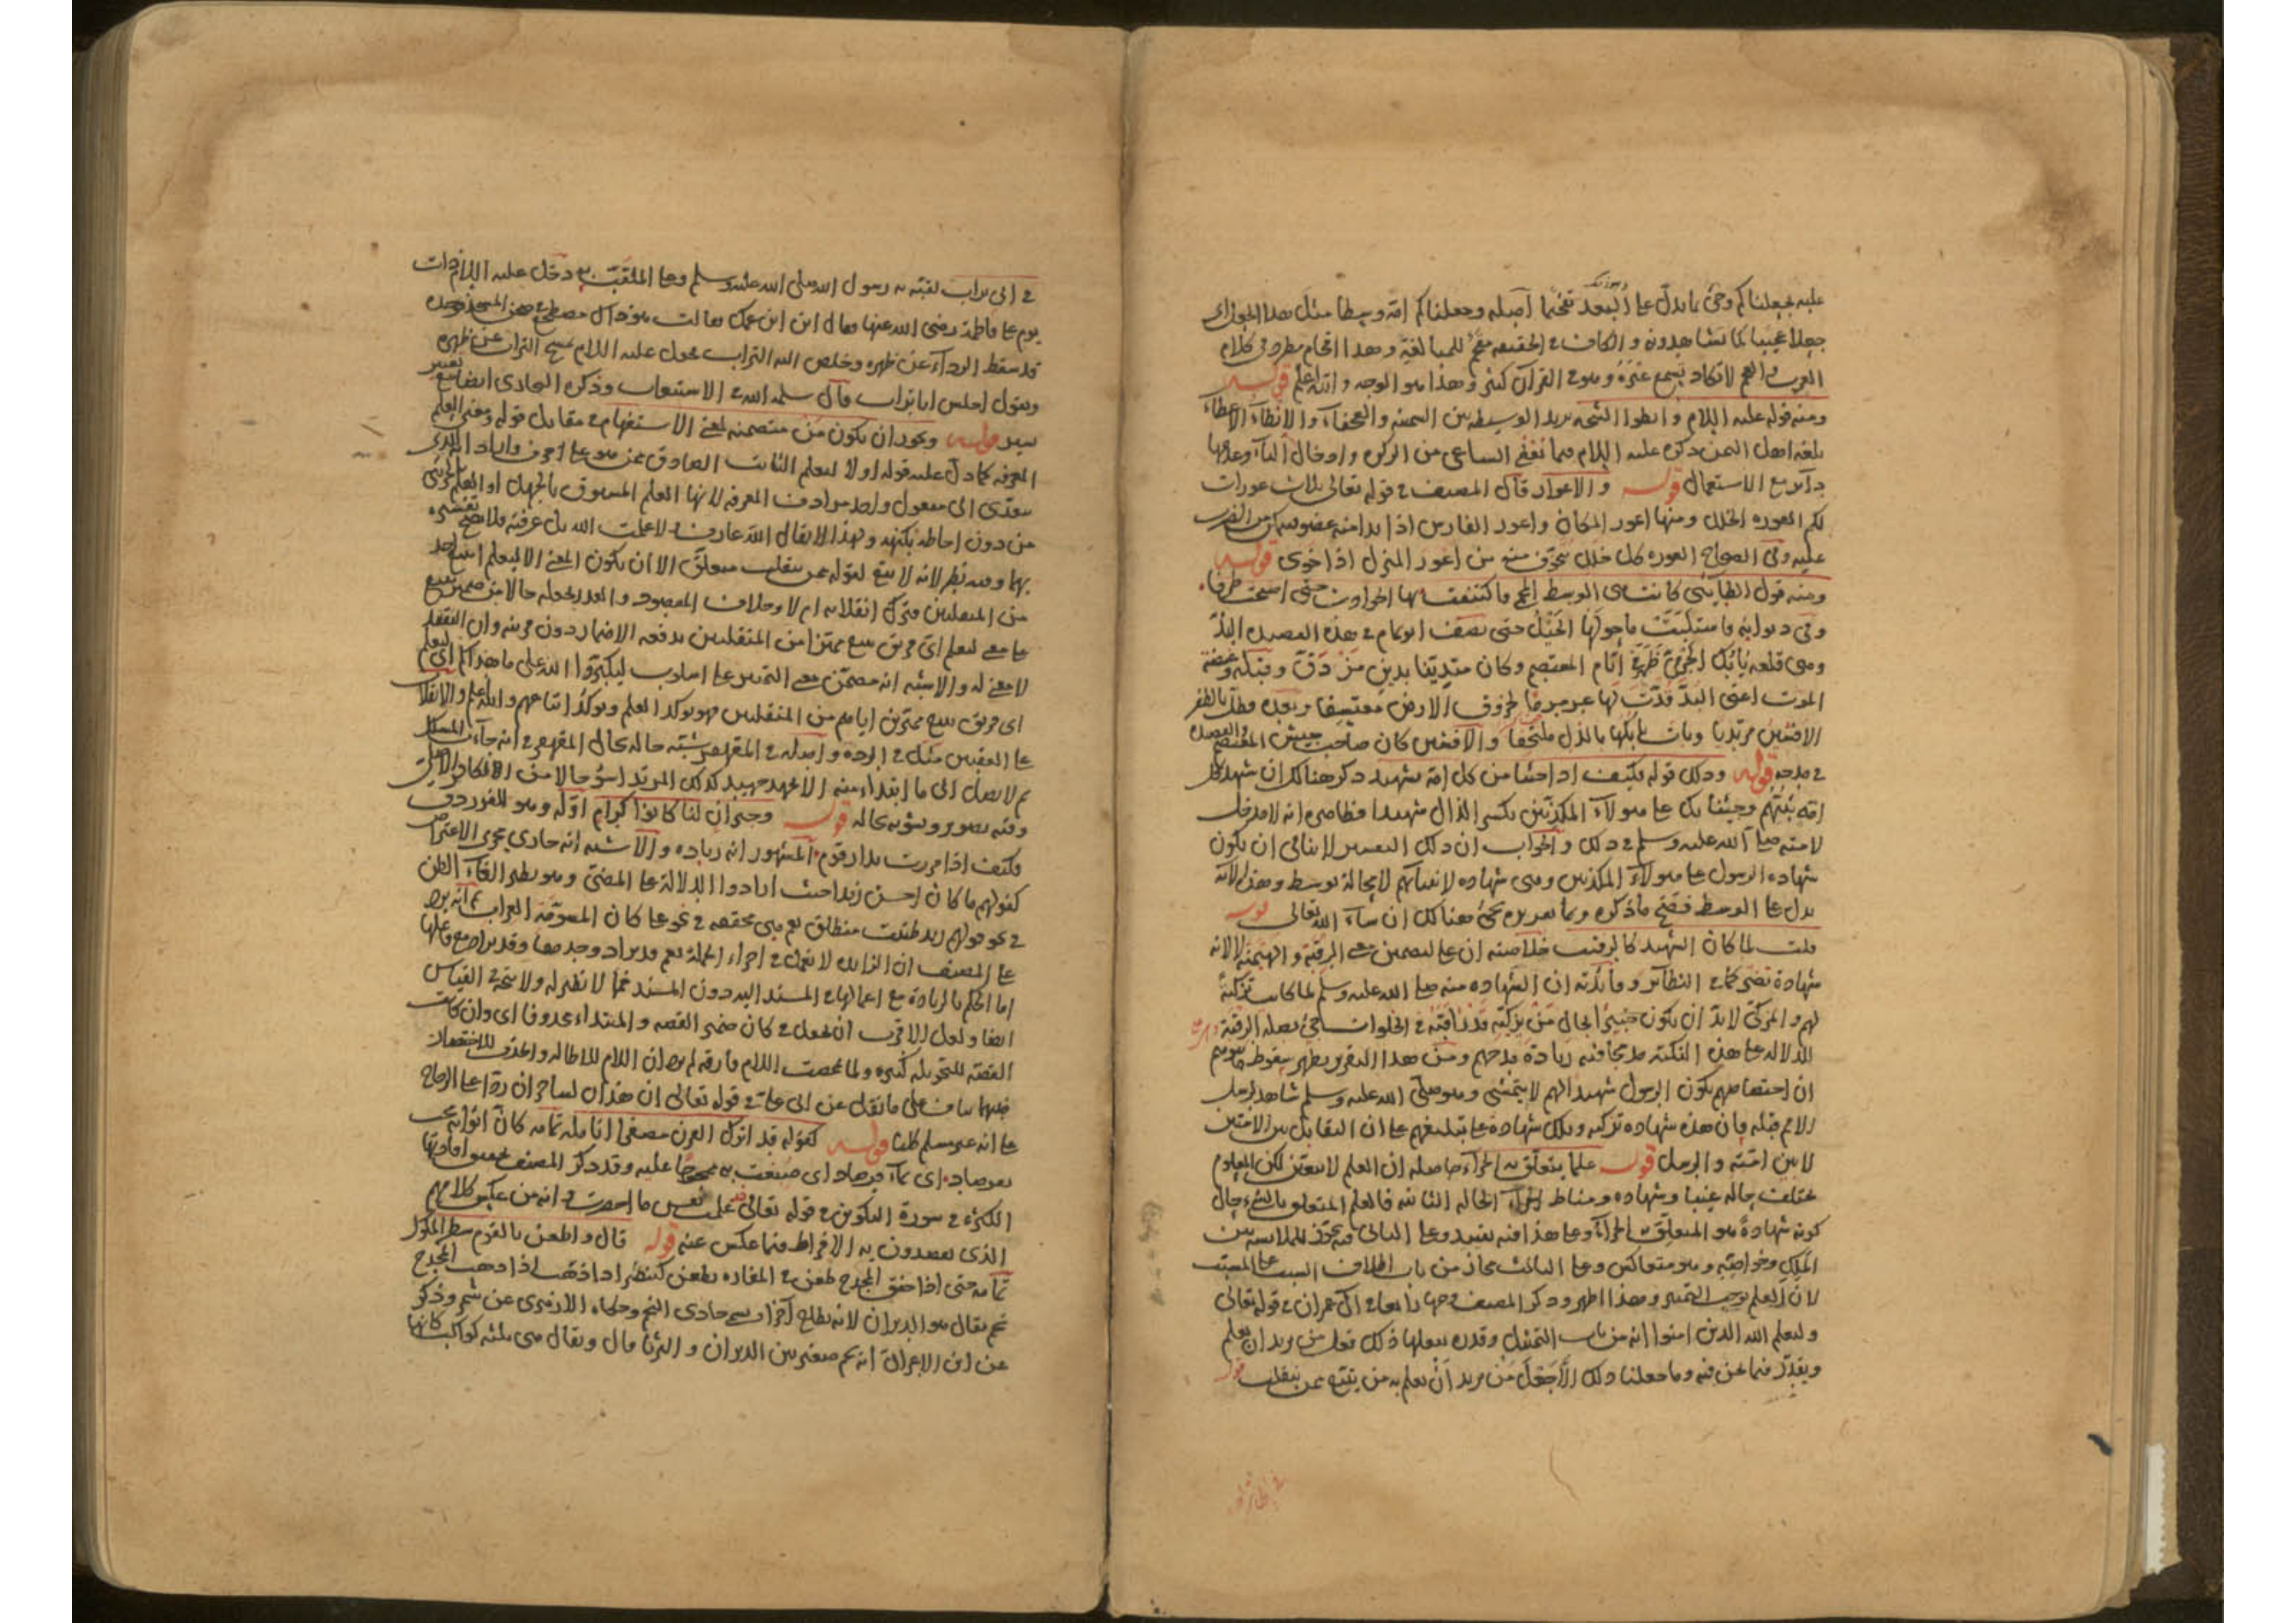 عليه بجعلناكم وجئ بما يدل على البعد تفخيما أصله وجعلناكم امة وسطا مثل هذا الجعل اى
جعلا عجيبا كما تشاهدون و الكاف فى الحقيقة مقحم للمبالغة وهذا اقحام مطرد فى كلام
العرب و العجم لا تكاد تسمع غيره وهو فى القرآن كثير وهذا هو الوجه والله اعلم قوله
ومنه قوله عليه السلام و انطوا الثبجة يريد الوسيطة بين السمينة والعجفاء و الانطاء الاعطاء
بلغة اهل اليمن ذكره عليه السلام فيما الساعى من الزكوة و ادخال التاء وعدمها
دائر مع الاستعمال قوله و الاعوار قال المصنف فى قوله تعالى ثلاث عورات
لكم العورة الخلل ومنها اعور المكان واعور الفارس اذا بدا منه عضو للضرب
عليه وفى الصحاح العورة كل خلل يتخوف منه من اعور المنزل اذا خوى قوله
ومنه قول الطائى كانت هى الوسط المحمى فاكتنفت بها الحوادث حتى اصبحت طرفا
وفى ديوانه فاستلبت ما حولها الخيل حتى يصف ابو تمام فى هذه القصيدة البذ
وهى قلعة بابك الخرمى ظهر فى ايام المعتصم وكان متدينا بدين مزدق وقبله وغيضة
الموت اعنى البذ قدت لها عرمرما لحزوق الارض معتسفا وبعده وظل بالظفر
الافشين مرتديا وبات بابكها بالذل ملتحفا و الافشين كان صاحب جيش المعتصم والقصيدة
فى مدحه قوله وذلك قوله فكيف اذا جئنا من كل امة بشهيد ذكر هنالك ان شهيد كل
امة نبيهم وجئنا بك على هؤلاء المكذبين بكسر الذال شهيدا فظاهره انه لا مدخل
لامته صلى الله عليه وسلم فى ذلك و الجواب ان ذلك التفسير لا ينافى ان يكون
شهادة الرسول على هؤلاء المكذبين وهى شهادة لانبيائهم لا محالة بوسط وهذه الآية
يدل على الوسط فصح ما ذكره وتمام تقريره يجئ هنالك ان شاء الله تعالى قوله
قلت لما كان الشهيد كالرقيب خلاصته ان على لتضمين معنى الرقبة و الهيمنة لا لانه
شهادة تضر كما فى النظائر وفائدته ان الشهادة منه صلى الله عليه وسلم لما كانت تزكية
لهم و المزكى لا بد ان يكون خبيرا بحال من يزكيه قد راقبه فى الخلوات جئ بصلة الرقبة
للدلالة على هذه النكتة مدمجا فيه زيادة مدحهم ومن هذا التقرير يظهر سقوط
ان اختصاصهم بكون الرسول شهيدا لهم لا يتمشى وهو صلى الله عليه وسلم شاهد لرسل
الامم قبله فان هذه شهادة تزكية وتلك شهادة على تبليغهم على ان التقابل بين الامتين
لا بين امته و الرسل قوله علما يتعلق به الجزاء حاصله ان العلم لا يتغير لكن المعلوم
مختلف بحاله غيبا وشهادة ومناط الجزاء الحالة الثانية فالعلم المتعلق بالشئ حال
كونه شهادة هو المتعلق به الجزاء وعلى هذا فيه تقييد وعلى الثانى فيه تجوز للملابسة بين
الملك وخواصه وهو متعاكس وعلى الثالث مجاز من باب اطلاق السبب على المسبب
لان العلم يوجب التمييز وهذا اظهر وذكر المصنف وجها رابعا فى آل عمران فى قوله تعالى
وليعلم الله الذين امنوا انه من باب التمثيل وقدره فعلنا ذلك فعل من يريد ان يعلم
ويقدر فيما نحن فيه وما جعلنا ذلك الا جعل من يريد ان يعلم به من يتبع ممن ينقلب قوله
فى ابى تراب لقبته به رسول الله صلى الله عليه وسلم وعلى الملقب به دخل عليه السلام ذات
يوم على فاطمة رضى الله عنها فقال اين ابن عمك فقالت هو ذاك مضطجع فى صحن المسجد فوجده
قد سقط الرداء عن ظهره وخلص اليه التراب فجعل عليه السلام يمسح التراب عن ظهره
ويقول اجلس ابا تراب قال سلمه الله فى الاستيعاب وذكره البخارى ايضا مع تغيير
يسير قوله ويجوز ان يكون من متضمنة لمعنى الاستفهام فى مقابل قوله ومعنى العلم
المعرفة كما دل عليه قوله اولا ليعلم الثابت الصادق ممن هو على حرف واراد الذى
يتعدى الى مفعول واحد مرادف المعرفة لانها العلم المسبوق بالجهل او العلم
من دون احاطة بكنهه ولهذا لا يقال الله عارف ولا علمت الله بل عرفته فلا يصح تفسيره
بها وفيه نظر لانه لا يبقى لقوله ممن ينقلب متعلق الا ان يكون المعنى الا ليعلم اى
من المنقلبين منزل انقلابه ام لا وخلاف المقصود و بجعله حالا من ضمير يتبع
على معنى ليعلم اى فريق يتبع مميزا من المنقلبين يدفعه الاضمار دون قرينة وان التقييد
لا معنى له و الاشبه انه مضمن معنى التمييز على اسلوب ليكبروا الله على ما هداكم اى ليعلم
اى فريق يتبع مميزين اياهم من المنقلبين فهو يؤكد العلم ويؤكد اتباعهم والله اعلم و الانقلاب
على العقبين مثل فى الردة و اصله فى القهقرى شبه حاله بحال المقهقر فى انه جاء
ثم لا يصل الى ما ابتدأ منه الا بجهد جهيد كذلك المرتد اسوء حالا من الكافر الاصلى
وفيه تصوير وتشويه بحاله قوله وجيران لنا كانوا كرام اوله وهو للفرزدق
فكيف اذا مررت بدار قوم المشهور انه زيادة و الاشبه انه جار مجرى الاعتراض
كقولهم ما كان احسن زيدا حيث ارادوا الدلالة على المضى وهو نظير الغاء الظن
فى نحو قولهم زيد ظننت منطلق نعم هى محققة فى نحو على كان المسومة العراب ثم انه يرد
على المصنف ان الزائدة لا تعمل فى اجزاء الجملة نعم قد يراد وحدها وقد يراد مع عملها
اما الحكم بالزيادة مع اعمالها فى المسند اليه دون المسند فما لا نظير له ولا يتجه فى القياس
ايضا ولعل الاقرب ان يجعل فى كان ضمير القصة و المبتداء محذوفا اى وان كانت
القصة للتحويلة كبيرة ولما محضت اللام فارقة لم يرد ان اللام للاطالة والحذف للاختصار
فبينهما تناف على ما نقل عن ابى على فى قوله تعالى ان هذان لساحران ردا على الزجاج
على انه غير مسلم كليا قوله كقوله قد اترك القرن مصفرا انامله تمامه كان اثوابه مجت
بفرصاد اى بماء فرصاد اى صبغت به ممجوجا عليه وقد ذكر المصنف تحقيق افادتها
الكثرة فى سورة التكوير فى قوله تعالى علمت نفس ما احضرت انه من عكس كلامهم
الذى يقصدون به الافراط فيما عكس عنه قوله قال و اطعن بالقوم شطر الملوك
تمامه حتى اذا خفق المجدح طعن فى المفازة يطعن كينصر اذا ذهب اذا ذهب المجدح
نجم يقال هو الدبران لانه يطلع آخرا و يسمى حادى النجم وحكاه الازهرى عن شمر وذكر
عن ابن الاعرابى انه نجم صغير بين الدبران و الثريا قال ويقال هى ثلثة كواكب كانها